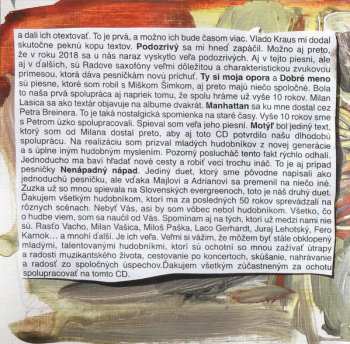 a dali ich otextovať. To je prvá, a možno ich bude časom viac. Vlado Kraus mi dodal
skutočne peknú kopu textov. Podozrivý sa mi hneď zapáčil. Možno aj preto,
že v roku 2018 sa u nás naraz vyskytlo veľa podozrivých. Aj v tejto piesni, ale
aj v ďalších, sú Radove saxofóny veľmi dôležitou a charakteristickou zvukovou
prímesou, ktorá dáva pesničkám novú príchuť. Ty si moja opora a Dobré meno
sú piesne, ktoré som robil s Miškom Šimkom, aj preto majú niečo spoločné. Bola
to naša prvá spolupráca aj napriek tomu, že spolu hráme už vyše 10 rokov. Milan
Lasica sa ako textár objavuje na albume dvakrát. Manhattan sa ku mne dostal cez
Petra Breinera. To je taká nostalgická spomienka na staré časy. Vyše 10 rokov sme
s Petrom úzko spolupracovali. Spieval som veľa jeho piesní. Motýľ bol jediný text,
ktorý som od Milana dostal preto, aby aj toto CD potvrdilo našu dlhodobú
spoluprácu. Na realizáciu som prizval mladých hudobníkov z novej generácie
a s úplne iným hudobným myslením. Pozorný poslucháč tento fakt objaví rýchlo.
Jednoducho ma baví hľadať nové cesty a robiť veci trochu ináč. To je aj prípad
pesničky Nenápadný nápad. Jediný duet, ktorý sme pôvodne napísali ako
jednoduchú pesničku, ale vďaka Majlovi a Adrianovi sa premenil na niečo iné.
Zuzka už so mnou spievala na Slovenských evergreenoch, toto je náš druhý duet.
Ďakujem všetkým hudobníkom, ktorí ma za posledných 50 rokov sprevádzali na
rôznych scénach. Nebyť Vás, asi by som vôbec nebol hudobníkom. Všetko, čo
o hudbe viem, som sa naučil od Vás. Spomínam aj na tých, ktorí už medzi nami nie
sú. Rasťo Vacho, Milan Vašica, Miloš Paška, Laco Gerhardt, Juraj Lehotský, Fero
Kamok... a mnohí ďalší. Je ich veľa. Veľmi si vážim, že môžem byť stále obklopený
mladými, talentovanými hudobníkmi, ktorí sú ochotní so mnou zažívať útrapy
a radosti muzikantského života, cestovanie po koncertoch, skúšanie, nahrávanie
a radosť zo spoločných úspechov.Ďakujem všetkým zúčastneným za ochotu
spolupracovať na tomto CD.